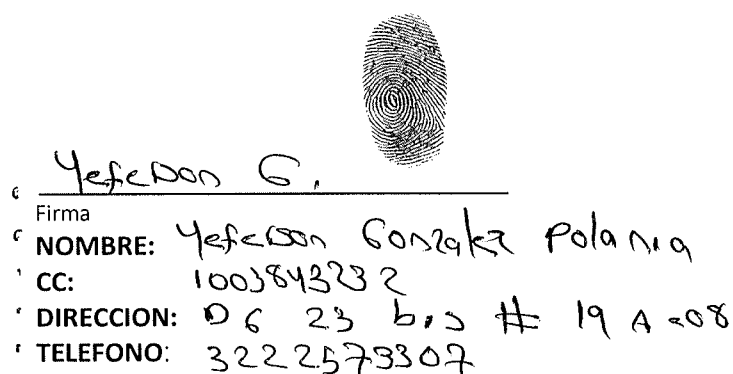 Yeferson G.
Firma
NOMBRE: Yeferson Gonzalez Polania
CC: 1003843232
DIRECCION: DG 23 bis # 19 A -08
TELEFONO: 3222579307